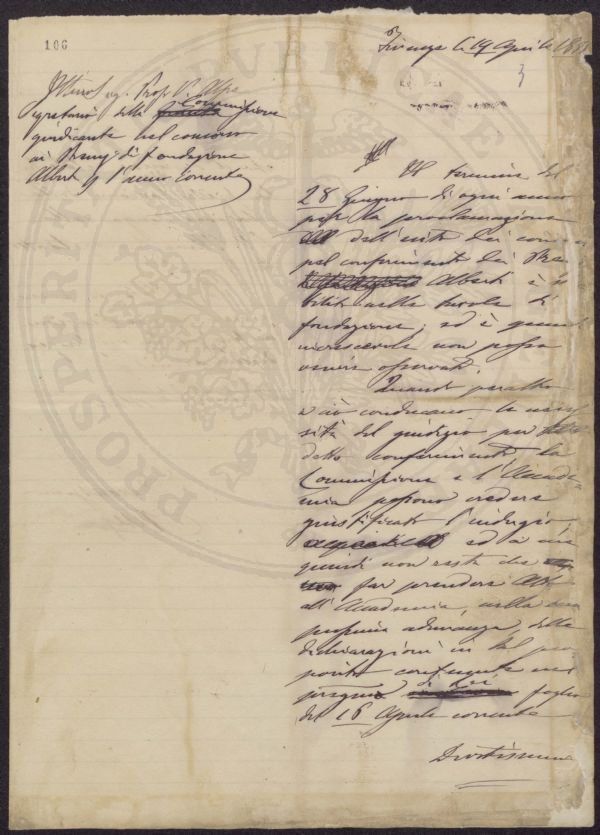 106
Firenze li 19 Aprile 18
Illmo Sig. Prof. P. Alfe
gretario della Commissione
giudicante nel concorso
ai Premj di fondazione
Alberti p l'anno corrente
Il termine del
28 Giugno di ogni anno
per la proclamazione
dell'esito dei con
pel conferimento dei Pre
Alberti è
bilito nella tavola di
fondazione; ed è
increscevole non possa
venire osservato.
Quando peraltro
a ciò conducano le neces
sità del giudizio per
detto conferimento, la
Commissione e l'Accade-
mia possono credere
giustificato l'indugio,
ed a me
quindi non resta che
far prendere atto
all'Accademia, nella sua
prossima adunanza, delle
dichiarazioni in tal pro
posito contenute nel
pregmo di Lei foglio
del 16 Aprile corrente
Devotissimo
PROSPERITA
PUBBLICA